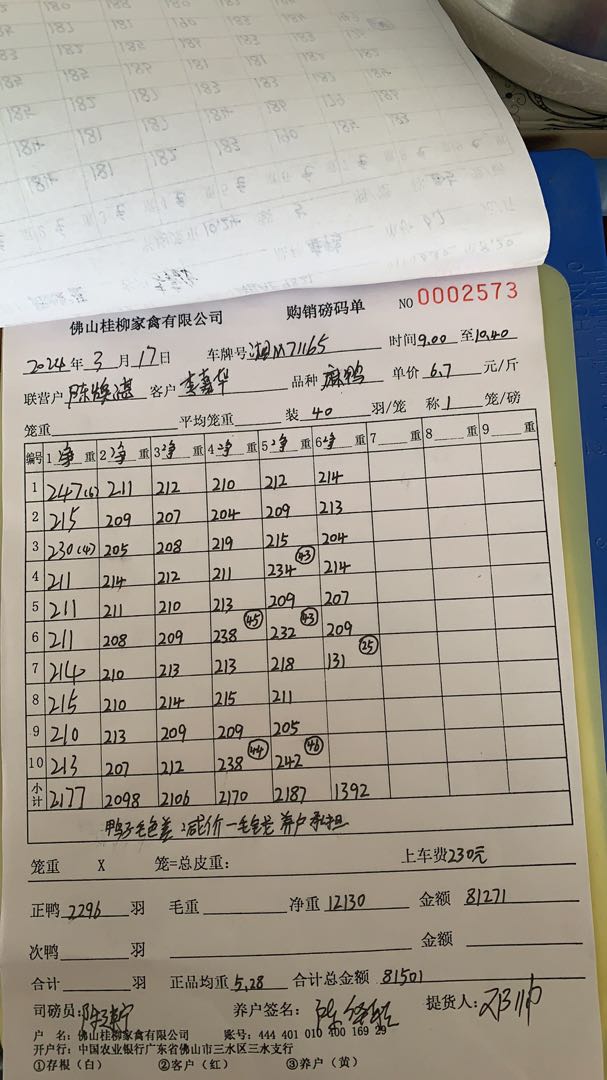 佛山桂柳家禽有限公司 购销磅码单 NO 0002573
2024年3月17日 车牌号 湘M71165 时间9.00至10.40
联营户 陈焕湛 客户 李嘉华 品种 麻鸭 单价 6.7 元/斤
笼重 平均笼重 装 40 羽/笼 称 1 笼/磅
编号 1净重 2净重 3净重 4净重 5净重 6净重 7重 8重 9重
1 247(6) 211 212 210 212 214
2 215 209 207 204 209 213
3 230(4) 205 208 219 215 204
4 211 214 212 211 234 (43) 214
5 211 211 210 213 209 207
6 211 208 209 238 (45) 232 (43) 209
7 214 210 213 213 218 131 (25)
8 215 210 214 215 211
9 210 213 209 209 205
10 213 207 212 238 (44) 242 (46)
小计 2177 2098 2106 2170 2187 1392
鸭子毛色差 减价一毛钱 养户承担
笼重 X 笼=总皮重: 上车费230元
正鸭 2296 羽 毛重 净重 12130 金额 81271
次鸭 羽 金额
合计 羽 正品均重 5,28 合计总金额 81501
司磅员: 养户签名: 提货人:
户 名: 佛山桂柳家禽有限公司 账号: 444 401 010 400 169 29
开户行: 中国农业银行广东省佛山市三水区三水支行
①存根(白) ②客户(红) ③养户(黄)